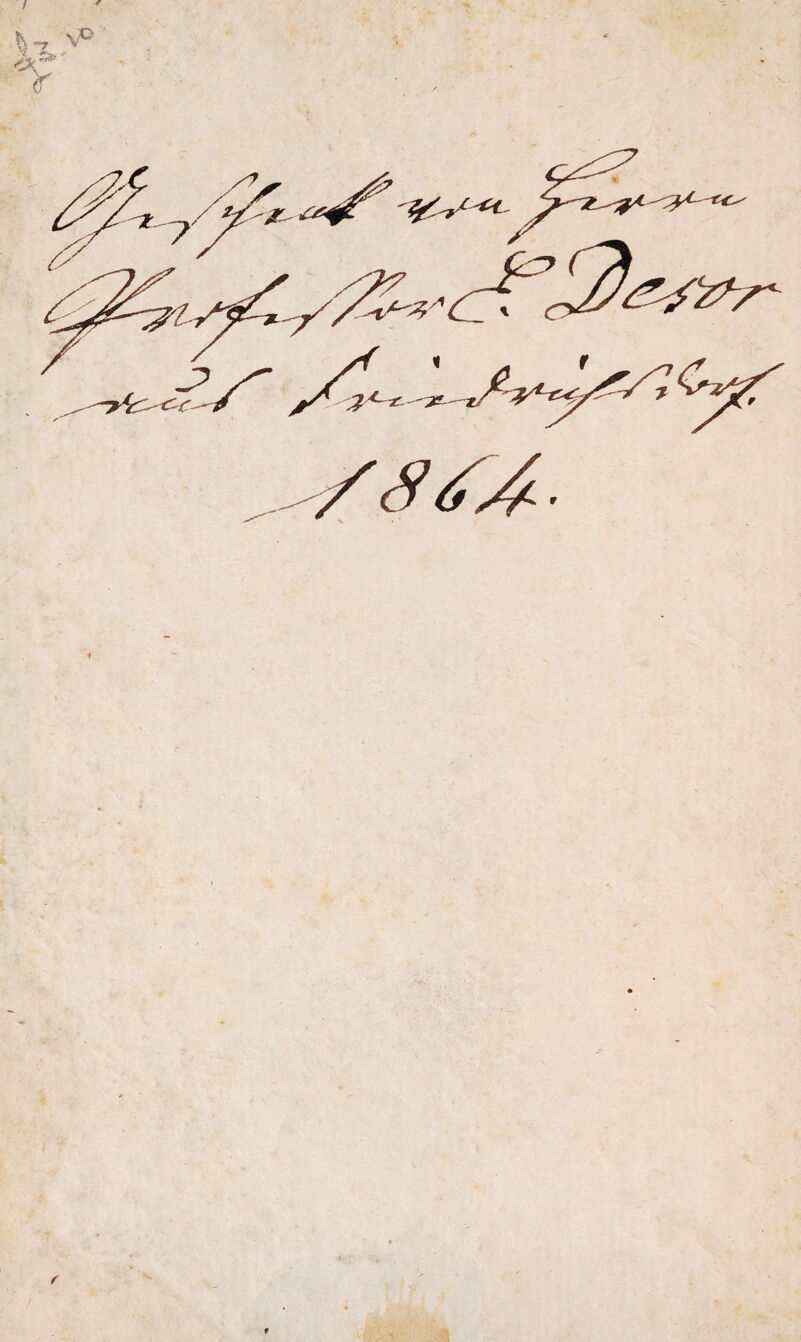 Geschenk von Herrn
Professor E. Desor
aus Friedrichsdorf.
1864.